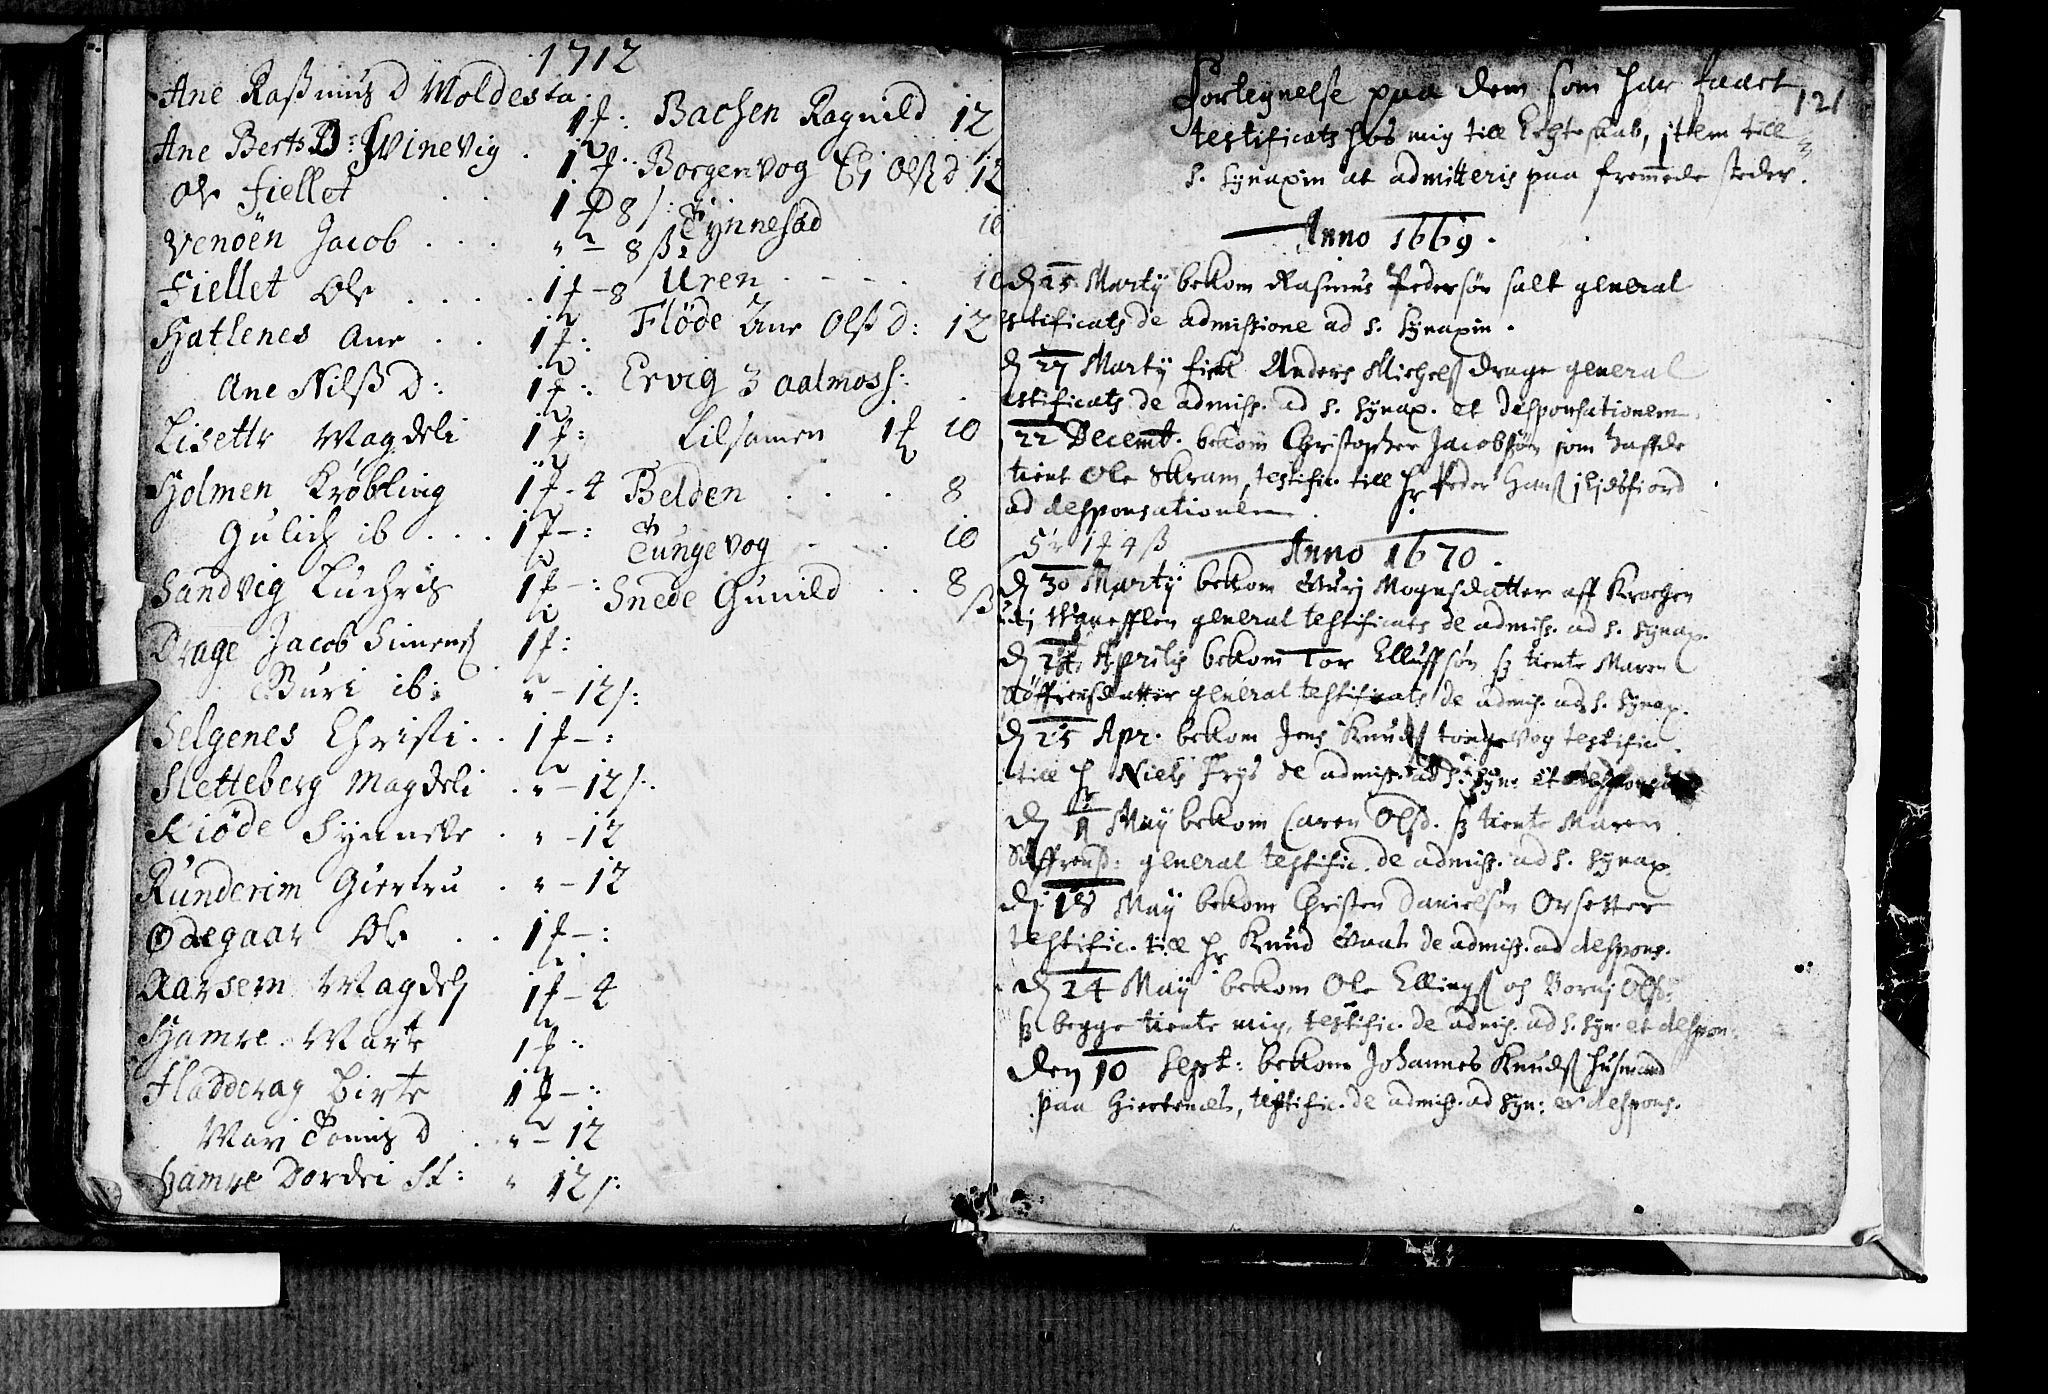 1712
Ane Raßmus D Moldesta
Ane Berts D: Svinevig . 1 f:
Ole Fiellet . . 1 f.
Venöen Jacob . . . 1 f 8 s:
" – 8 ß
Fiellet Ole . . . . 1 f – 8
Hatlenes Ane . . 1 f:
Ane Nilß D: 1 f:
Lisette Magdeli 1 f:
Holmen Krøbling 1 f - 4
Gulich ib . . . 1 f – :
Sandvig Luchris 1 f – :
Drage Jacob Simens 1 f:
Guri ib: " – 12 s:
Selgenes Christi . . 1 f – :
Sletteberg Magdeli . " – 12 s:
Kiöde Synneve . " – 12
Runderim Giertru . " – 12
Ødegaar Ole . . 1 f – :
Aarsem Magdeli 1 f – 4
Hamre Marte 1 f :
Fladderag Birte 1 f – :
Mari Tomis D . " – 12
Hamre Dordei St: " 12 s:
Bachen Ragnild 12
Borgenvog Eli Olß D 12
Tynnesød 10
Uren . – – . 10
Flöde Ane Olß D: 12
Ervig 3 aalmoss:
Lilsamen 1 f 10
Belden . . . 8
Tungevog – . 10
Snede Gunild . . 8 ß
121
Fortegnelse paa dem som har faaet
testificats hos mig till Echteskab, item till
S. Synaxin at admitteris paa fremmede steder.
Anno 1669.
D 15 Martij bekom Rasmus Pedersøn salt general
testificats de admissione ad S. Synaxin.
D 27 Martij fick Anders Michels Drage general
testificats de admiss. ad S. Synax. et desponsationem.
22 Decemb. bekom Christopher Jacobsøn som haffde
tient Ole Skram, testific. till Hr Peder Hanß i
ad desponsationem.
5 r 1 f 4 ß
Anno 1670.
D 30 Martij bekom Guri Mognsdatter aff Krochen
udj general testificats de admiss. ad S. Synax.
D 24 Aprilis bekom Tor Elluffsøn tiente Maren
Søffrensdatter general testificats de admiss. ad S. Synax.
D 25 Apr. bekom Jens Knudß tongevog testific.
till Hr Niels Frys de admiss. ad S. Syn: et
D 1 May bekom Caren Olsd. tiente Maren
Søffrensd: general testific. de admiss. ad S. Synax.
D 18 May bekom Christen Danielsøn Orsetter
testific. till Hr Knud de admiss. ad despons.
D 24 May bekom Ole Ellingß och Olsd:
begge tiente mig, testific. de admiss. ad S. Syn. et despon.
Den 10 Sept: bekom Johannes Knudß husmand
paa Giertenæs, testific. de admiss. ad Syn: et despons.